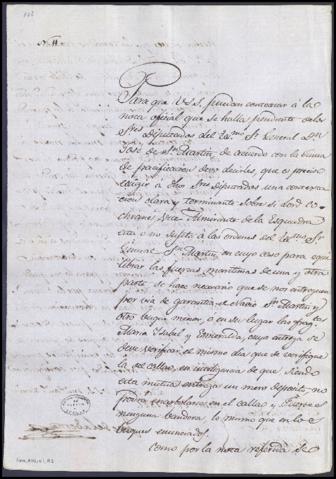 Nº 11
Para que V.S.S. puedan contextar á la
nota oficial que se halla pendiente de los
Sres Diputados del Exmo Sr General Dn
José de Sn Martin, de acuerdo con la Junta
de pacificacion devo decirles que es preciso
exigir á dhos Sres Diputados una contexta-
cion clara y terminante sobre si Lord Co-
chrane Vice Almirante de la Esquadra
está ó no sujeto á las ordenes del Exmo Sr
General Sn Martin, en cuyo caso para equi-
librar las fuerzas maritimas de una y otra
parte se hace necesario que se nos entreguen
por via de garantia el Navio Sn Martin y
otro buque menor, ó en su lugar las fragatas
Maria Isabel y Esmeralda, cuya entrega se
deve verificar el mismo dia que se verifique
la del Callao, en inteligencia de que siendo
esta mutua entrega un mero deposito no
podrá enarbolarse en el Callao y Fuertes
ninguna bandera, lo mismo que en los
buques enunciados.
Como por la nota referida se